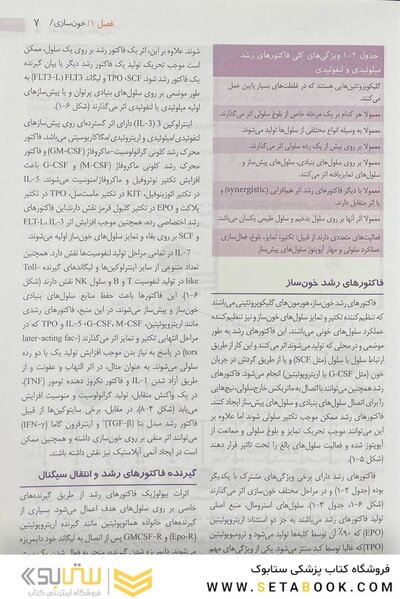 فصل ۱/ خون‌سازی/ ۷
جدول ۲-۱ ویژگی‌های کلی فاکتورهای رشد
میلوئیدی و لنفوئیدی
گلیکوپروتئین‌هایی هستند که در غلظت‌های بسیار پایین عمل
می‌کنند.
معمولا هر کدام بر یک مرحله خاص از بلوغ سلولی اثر می‌گذارند.
معمولا به وسیله انواع مختلفی از سلول‌ها تولید می‌شوند.
معمولا بر روی بیش از یک رده سلولی اثر می‌گذارند.
معمولا بر روی سلول‌های بنیادی، سلول‌های پیش‌ساز و
سلول‌های تمایزیافته اثر می‌کنند.
معمولا با دیگر فاکتورهای رشد اثر هم‌افزایی (synergistic) و
یا اثر متقابل دارند.
معمولا اثر آنها بر روی سلول بدخیم و سلول طبیعی یکسان می‌باشد.
فعالیت‌های متعددی دارند از قبیل: تکثیر، تمایز، بلوغ، فعال‌سازی
عملکردی و مهار آپوپتوز سلول‌های پیش‌ساز
فاکتورهای رشد خون‌ساز
فاکتورهای رشد خون‌ساز، هورمون‌های گلیکوپروتئینی می‌باشند
که تنظیم کننده تکثیر و تمایز سلول‌های خون‌ساز و نیز تنظیم‌کننده
عملکرد سلول‌های خونی می‌باشند. این فاکتورها هم به طور
موضعی و در محلی که تولید می‌شوند اثر می‌کنند و این کار از طریق
ارتباط سلول با سلول (مثل SCF) و یا از طریق گردش در جریان
خون (مثل G-CSF یا اریتروپویتین) انجام می‌شود. فاکتورهای
رشد همچنین می‌توانند با اتصال به ماتریکس خارج سلولی، نیچ‌هایی
را برای چسبندگی سلول‌های بنیادی و سلول‌های پیش ساز ایجاد کنند.
این فاکتورها ممکن است موجب تکثیر سلولی شوند اما علاوه بر
این می‌توانند موجب تحریک تمایز و بلوغ سلولی و ممانعت از
آپوپتوز شده و فعالیت سلول‌های بالغ را تحت تاثیر قرار دهند
(شکل ۵-۱).
فاکتورهای رشد دارای برخی ویژگی‌های مشترک با یکدیگر
بوده (جدول ۲-۱) و در مراحل مختلف خون‌سازی اثر می‌کنند
(شکل ۶-۱، جدول ۳-۱). سلول‌های استرومال، منبع اصلی
تولید فاکتورهای رشد می‌باشند به جز دو استثناء: اریتروپویتین
(EPO) که ۹۰٪ آن توسط کلیه‌ها تولید می‌شود و ترومبوپویتین
(TPO) که غالبا توسط کبد سنتز می‌شود. یکی از ویژگی‌های مهم
شوند. علاوه بر این، اثر یک فاکتور رشد بر روی یک سلول، ممکن
است موجب تحریک تولید یک فاکتور رشد دیگر یا بیان گیرنده
یک فاکتور رشد شود. SCF، TPO و لیگاند FLT3 (FLT3-L) به
طور موضعی بر روی سلول‌های بنیادی پرتوان و یا پیش‌سازهای
اولیه میلوئیدی یا لنفوئیدی اثر می‌گذارند (شکل ۶-۱).
اینترلوکین 3 (IL-3) دارای اثر گسترده‌ای روی پیش‌سازهای
لنفوئیدی/میلوئیدی و اریتروئیدی/مگاکاریوسیتی می‌باشد. فاکتور
محرک رشد کلونی گرانولوسیت-ماکروفاژ (GM-CSF) و فاکتور
محرک رشد کلونی ماکروفاژ (M-CSF) و G-CSF باعث
افزایش تکثیر نوتروفیل و ماکروفاژ/مونوسیت می‌شوند. IL-5
در تکثیر ائوزینوفیل، KIT در تکثیر ماست‌سل، TPO در تکثیر
پلاکت و EPO در تکثیر گلبول قرمز نقش دارند. این فاکتورهای
رشد اختصاصی رده، همچنین موجب افزایش اثر IL-3، FLT-L
و SCF بر روی بقاء و تمایز سلول‌های خون‌ساز اولیه می‌شوند.
IL-7 در تمامی مراحل تولید لنفوسیت‌ها نقش دارد. همچنین
تعداد متنوعی از سایر اینترلوکین‌ها و لیگاندهای گیرنده Toll-
like در تولید لنفوسیت T و B و سلول NK نقش دارند (شکل
۶-۱). این فاکتورها باعث حفظ منابع سلول‌های بنیادی
خون‌ساز و پیش‌ساز می‌شوند. در این منبع، فاکتورهای رشدی
مانند اریتروپویتین، IL-5 ،G-CSF، M-CSF و TPO که در
مراحل انتهایی تکثیر و تمایز اثر می‌گذارند (later-acting fac-
tors) در پاسخ به نیاز بدن موجب افزایش تولید یک یا دو رده
سلولی می‌شوند. به عنوان مثال، در اثر التهاب و عفونت و از
طریق آزاد شدن IL-1 و فاکتور نکروز دهنده تومور (TNF)،
در یک واکنش متقابل، تولید گرانولوسیت و منوسیت افزایش
می‌یابد (شکل ۴-۸). در مقابل، برخی سایتوکین‌ها از قبیل
فاکتور رشد مبدل بتا (TGF-β) و اینترفرون گاما (IFN-γ)
می‌توانند اثر منفی بر روی خون‌سازی داشته و همچنین ممکن
است در ایجاد آنمی آپلاستیک نیز نقش داشته باشند.
گیرنده فاکتورهای رشد و انتقال سیگنال
اثرات بیولوژیک فاکتورهای رشد از طریق گیرنده‌های
خاصی بر روی سلول‌های هدف اعمال می‌شود. بسیاری از
گیرنده‌های خانواده هماتوپویتین مانند گیرنده اریتروپویتین
(Epo-R) و GMCSF-R پس از اتصال به لیگاند خود دایمریزه
فروشگاه کتاب پزشکی ستابوک
WWW.SETABOOK.COM
ستابوک
فروشگاه اینترنتی کتاب